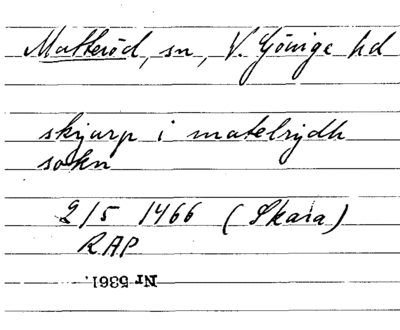 Matteröd, sn, V. Göinge hd
skyarp i matelrydh
sokn
2/5 1466 (Skara)
RAP
Nr 5361.